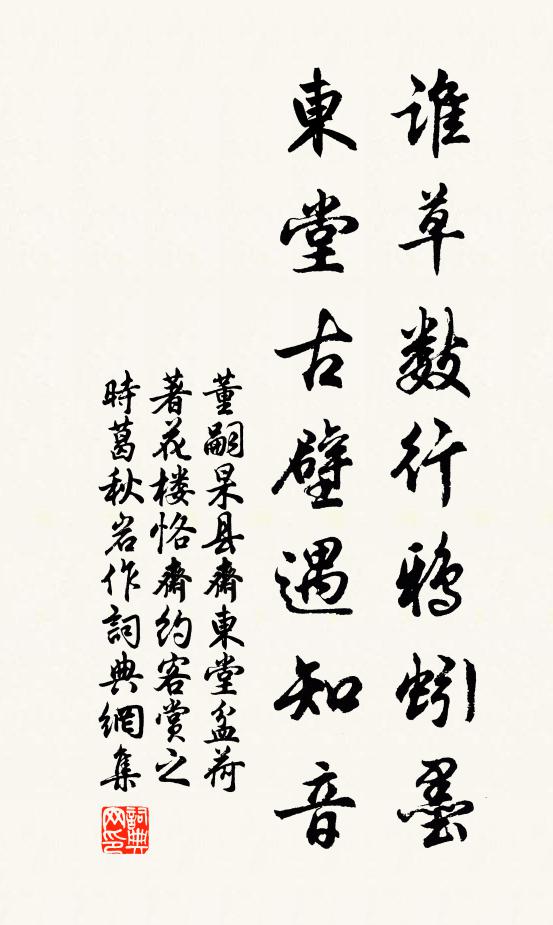 谁草数行鸦蚓墨
東堂古壁遇知音
董嗣杲县齋東堂盆荷
著花楼恪齋约客赏之
時葛秋岩作詞典網集
詞典
网印